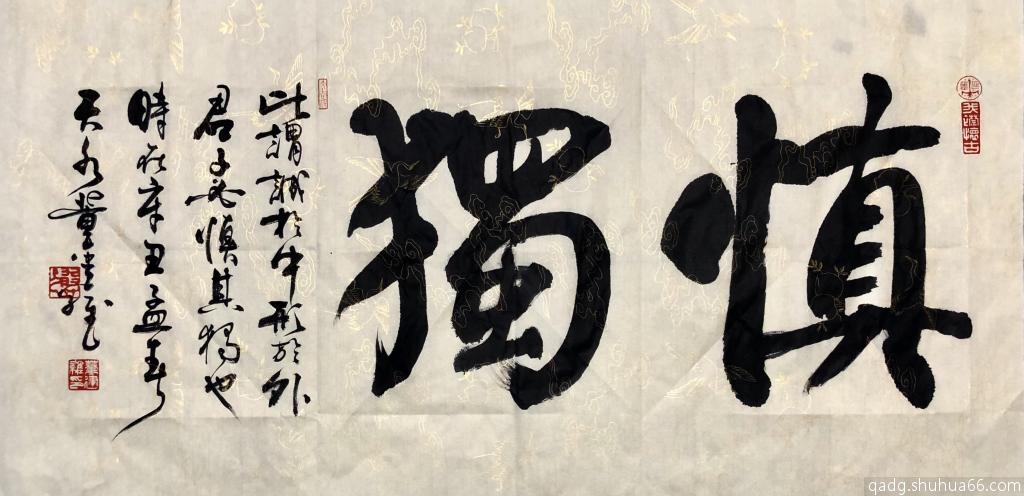 慎獨
此謂誠於中形於外
君子必慎其獨也
時在辛丑孟春
天水
qadg.shuhua66.com